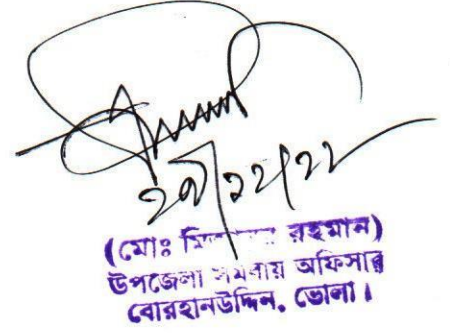 ২৯/১২/২২
(মোঃ রহমান)
উপজেলা সমবায় অফিসার
বোরহানউদ্দিন, ভোলা।